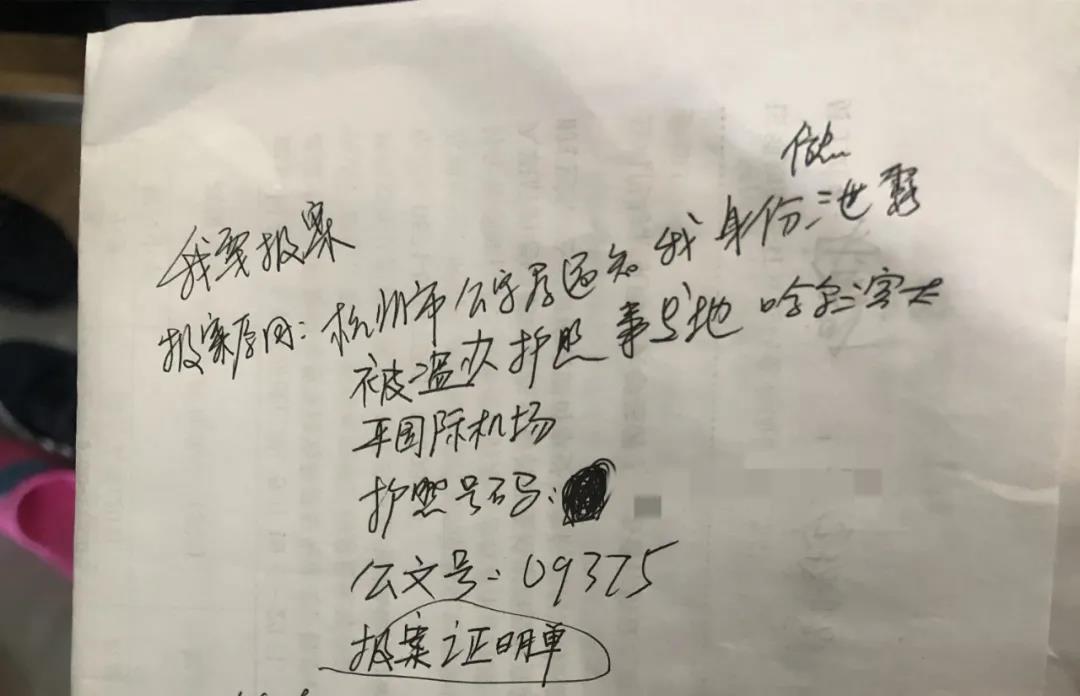 我要报案
信息
报案原因：杭州市公安局通知我身份泄露
被盗办护照 事发地 哈尔滨太
平国际机场
护照号码：
公文号：09375
报案证明单